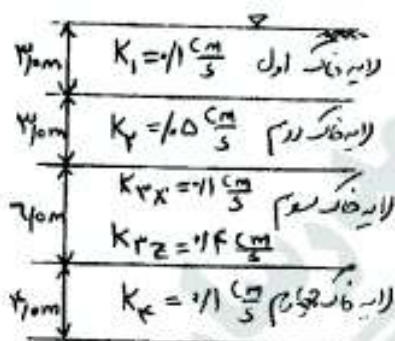 ۳/۰m K₁ = ۰/۱ cm/s لایه خاک اول
۳/۰m K۲ = /۰۵ cm/s لایه خاک دوم
K۳x = ۰/۱ cm/s
۶/۰m لایه خاک سوم
K۳z = ۰/۴ cm/s
۴/۰m K۴ = ۰/۱ cm/s لایه خاک چهارم